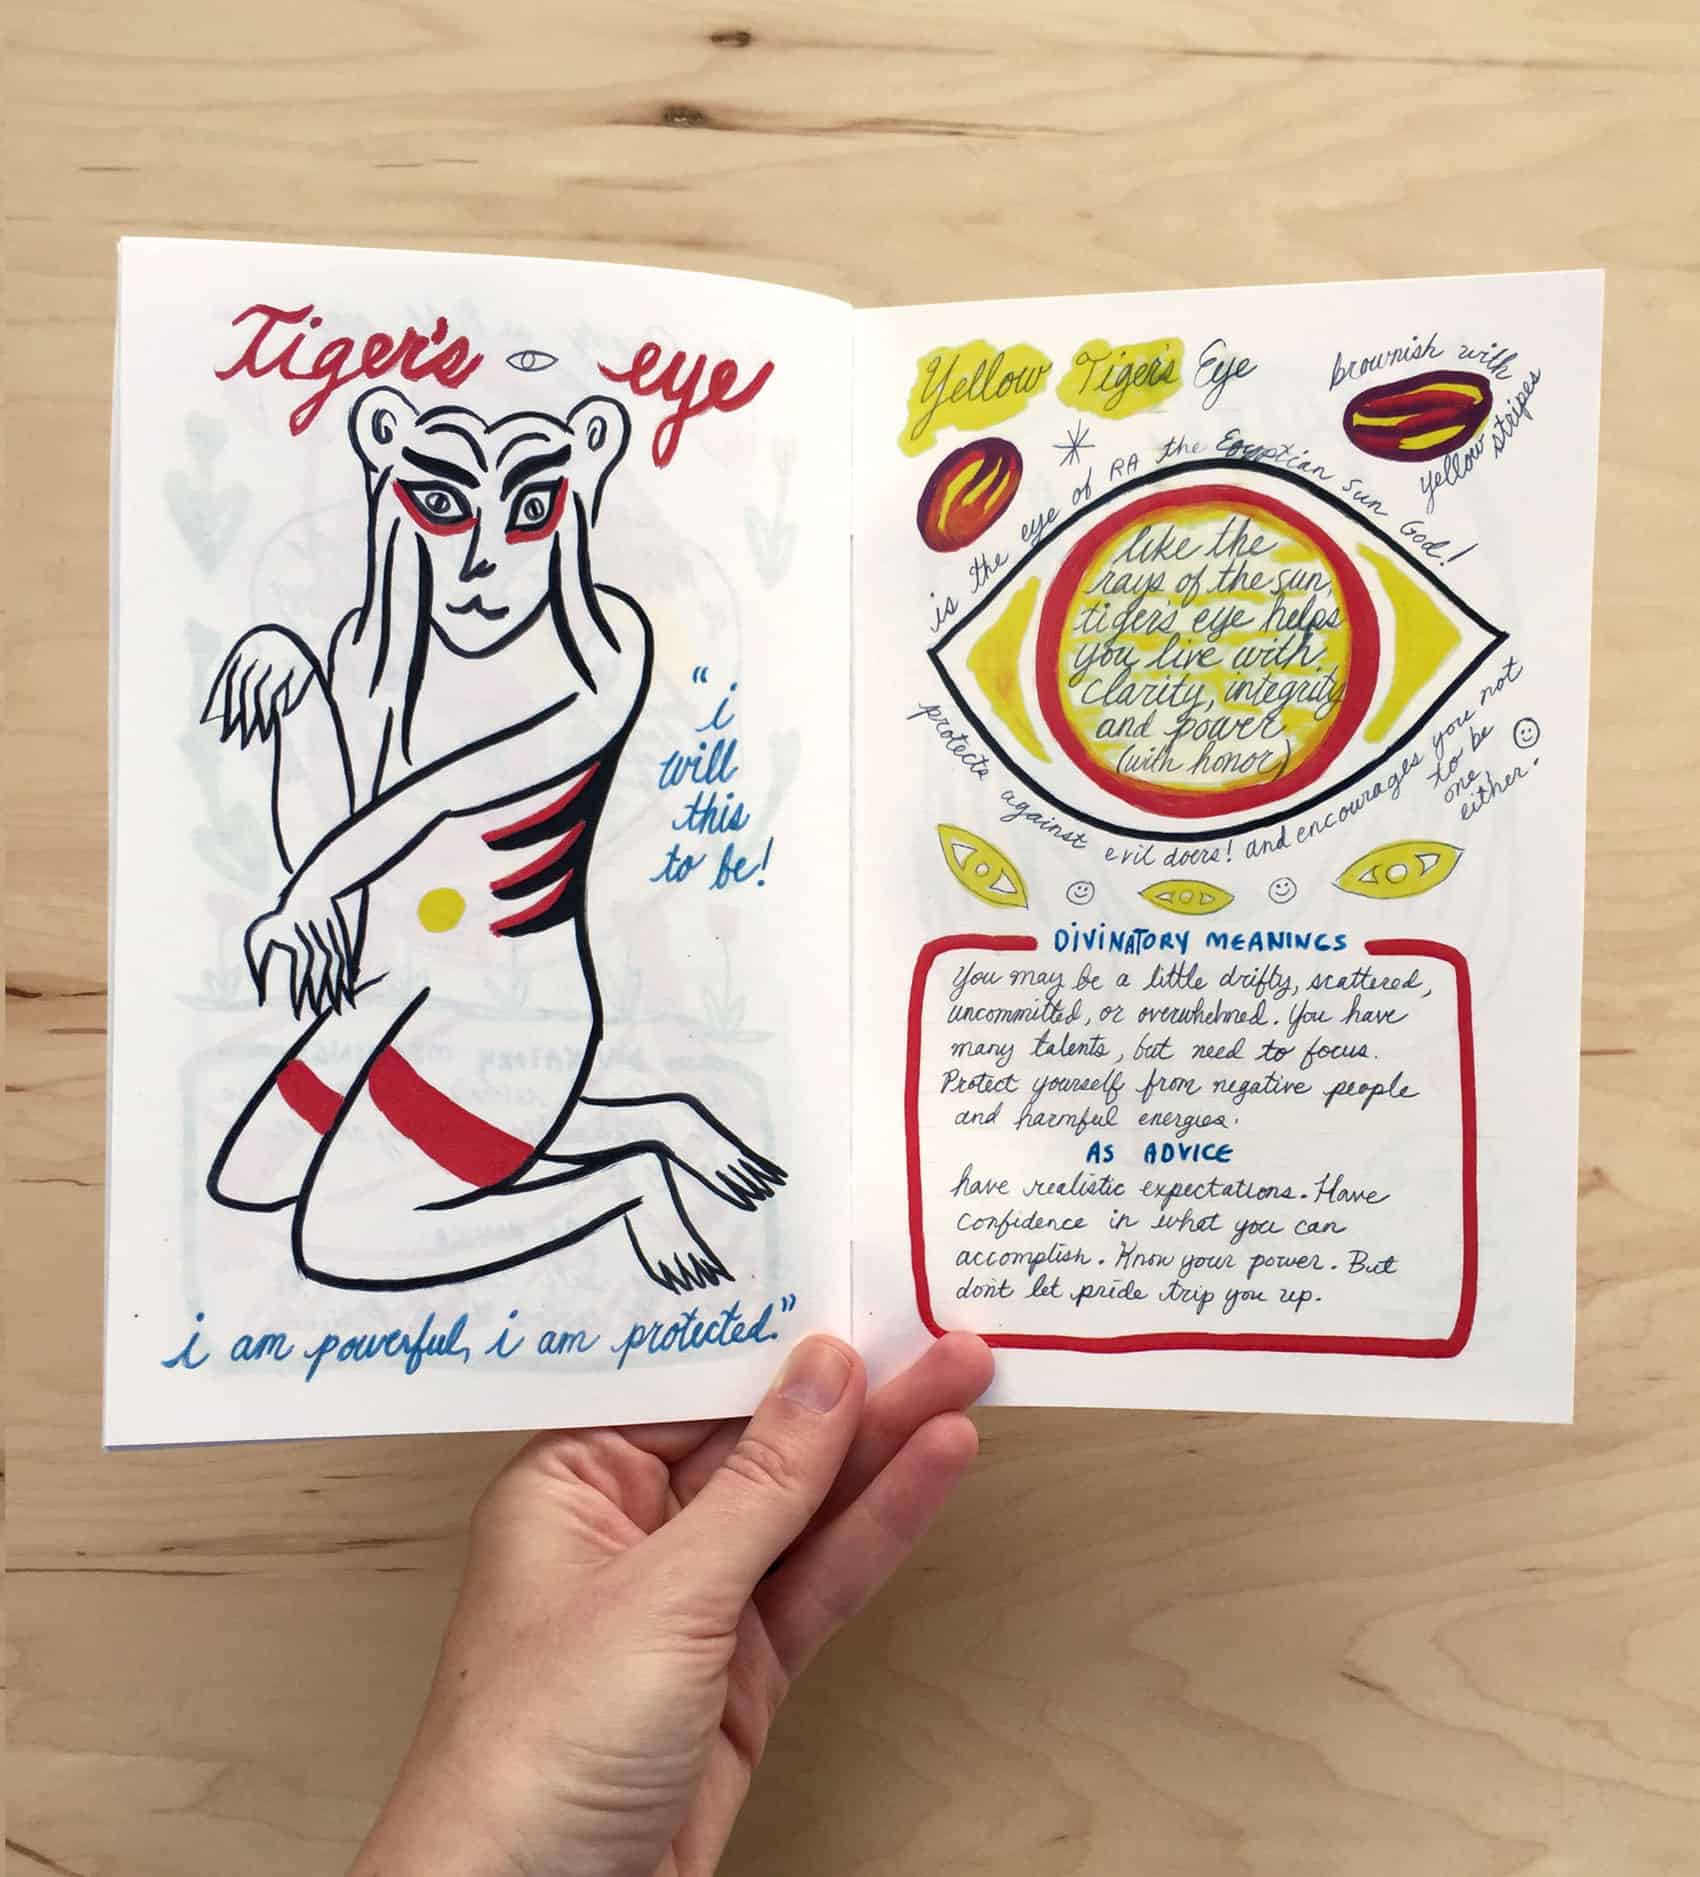 Tiger's eye
"i
will
this
to be!
i am powerful, i am protected."
Yellow Tiger's Eye
brownish with
yellow stripes
is the eye of RA the Egyptian sun God!
like the
rays of the sun,
tiger's eye helps
you live with
clarity, integrity
and power
(with honor)
protects against evil doers! and encourages you not
to be
one,
either.
DIVINATORY MEANINGS
You may be a little drifty, scattered,
uncommitted, or overwhelmed. You have
many talents, but need to focus.
Protect yourself from negative people
and harmful energies.
AS ADVICE
have realistic expectations. Have
confidence in what you can
accomplish. Know your power. But
don't let pride trip you up.